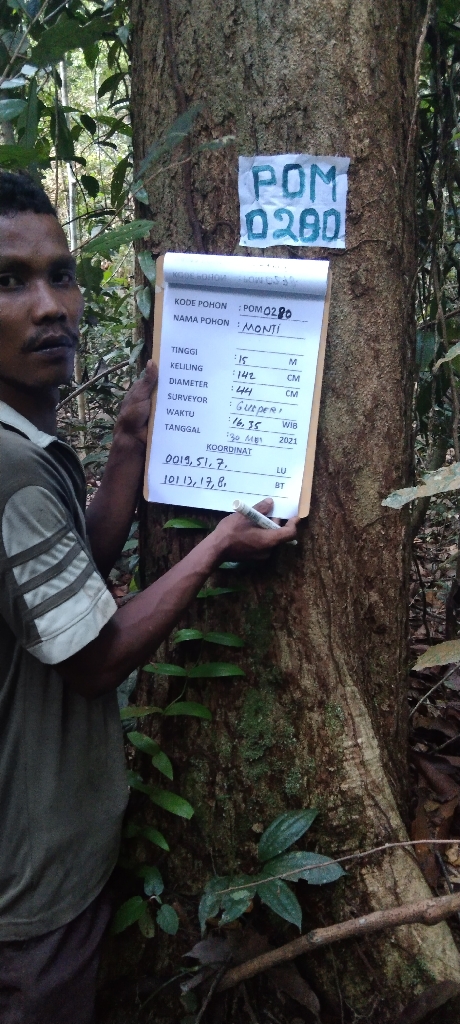 POM
0280
KODE POHON : POM0280
NAMA POHON : MONTI
TINGGI : 15 M
KELILING : 142 CM
DIAMETER : 44 CM
SURVEYOR : GUSPERI
WAKTU : 16,35 WIB
TANGGAL : 30 MEI 2021
KOORDINAT
0019,51,7, LU
10113,17,8, BT